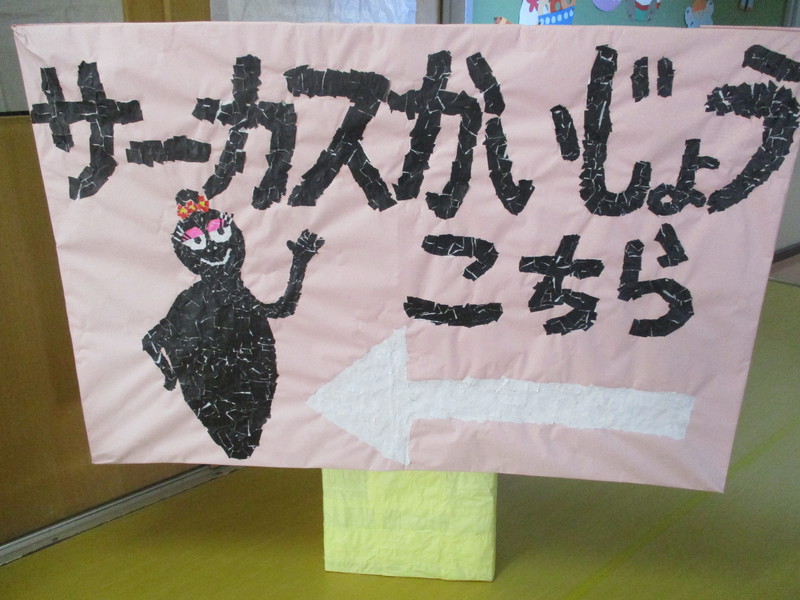 サーカスかいじょう
こちら